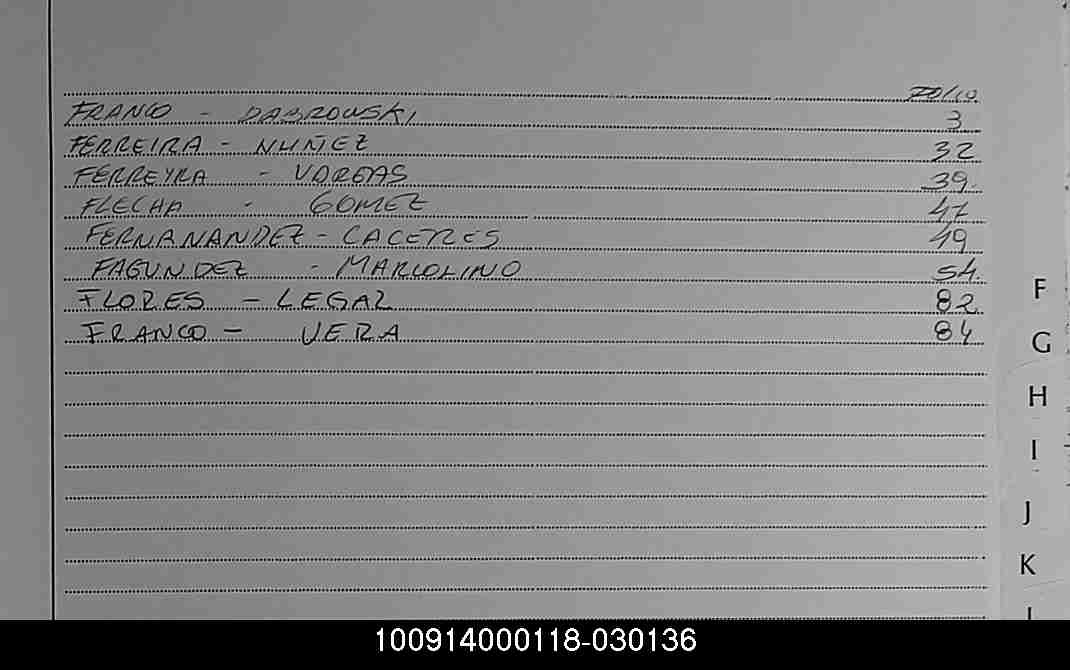 FOLIO
FRANCO - DABROWSKI 3
FERREIRA - NUÑEZ 32
FERREYRA - VARGAS 39
FLECHA - GOMEZ 47
FERNANANDEZ - CACERES 49
FAGUNDEZ - MARCOLINO 54
FLORES - LEGAL 82
FRANCO - VERA 84
F
G
H
I
J
K
100914000118-030136